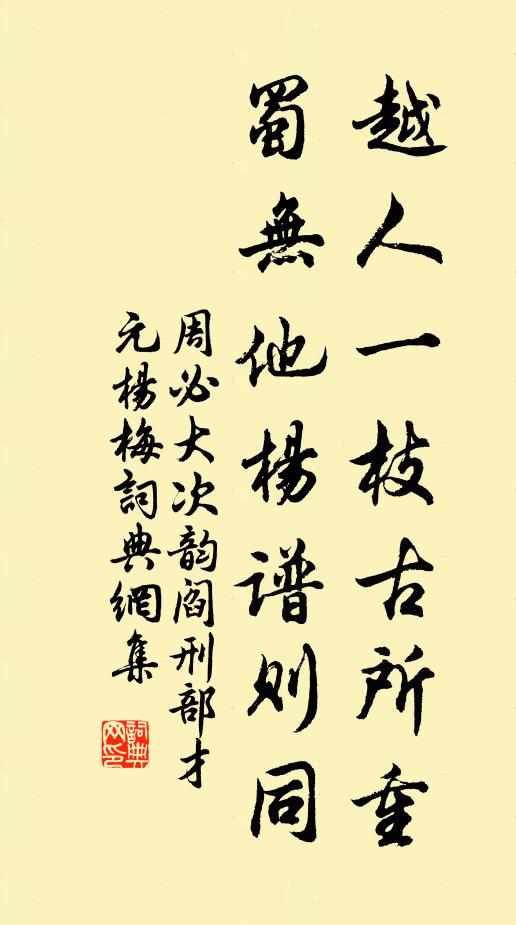 越人一枝古所重
蜀無他楊譜則同
周必大次韵閻刑部才
元楊梅詞典網集
詞典網印